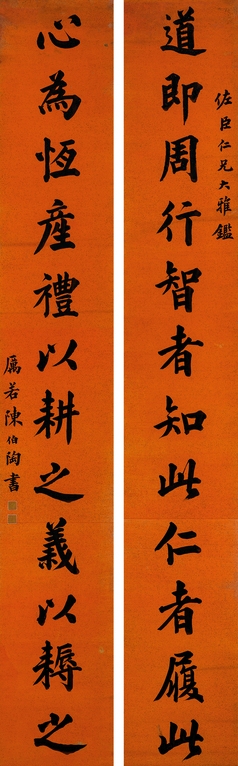 佐臣仁兄大雅鑑
道即周行智者知此仁者履此
心為恆產禮以耕之義以耨之
厲若陳伯陶書